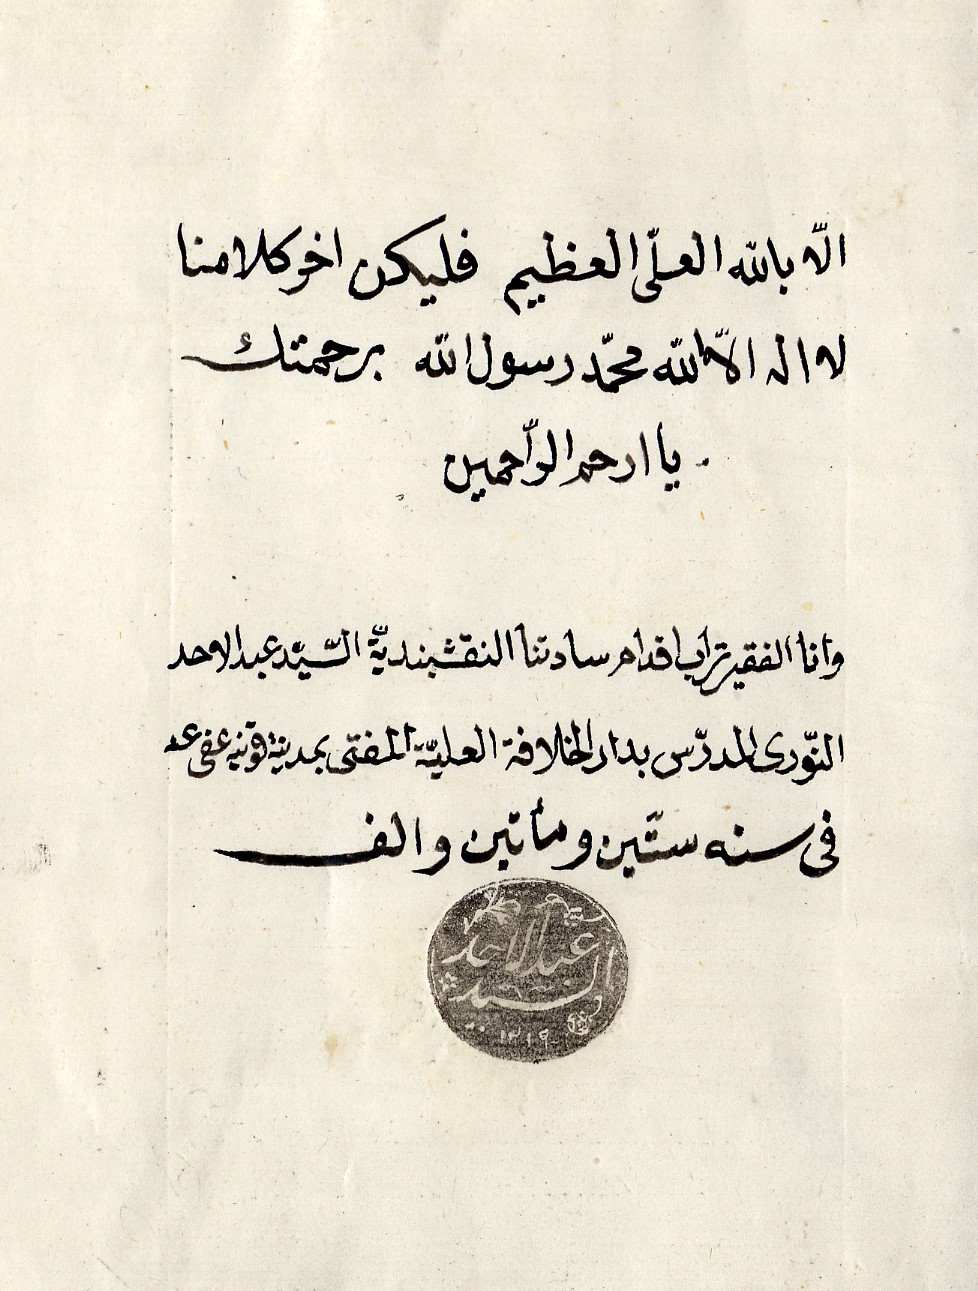 الّا بالله العلّى العظيم فليكن اخر كلامنا
لا اله الّا الله محمّد رسول الله برحمتك
يا ارحم الرّاحمين
وانا الفقير تراب اقدام ساداتنا النقشبنديّة السّيّد عبد الاحد
النّورى المدرّس بدار الخلافة العليّة المفتى بمدينة قونيه عفى عنه
فى سنه ستّين ومأتين والف
عبد الاحد
السيد
١٢١٩